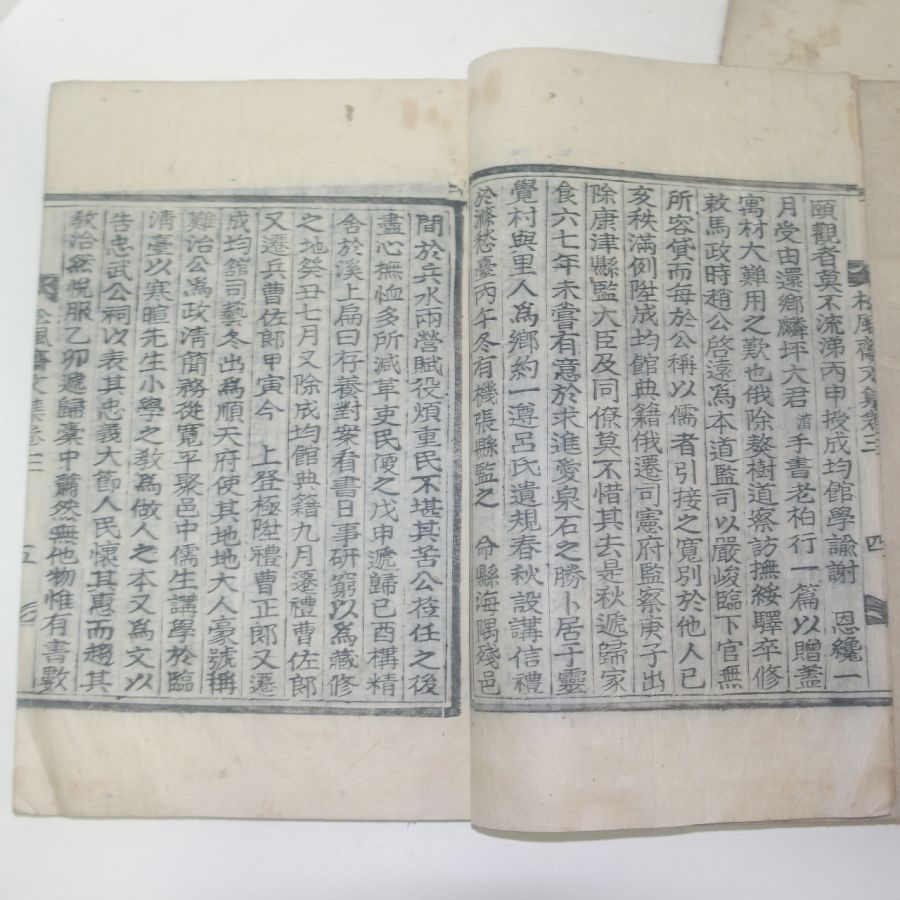 松風齋文集卷 四
頤觀者莫不流涕丙申授成均館學諭謝 恩纔一
月受由還鄉麟坪大君 手書老柏行一篇以贈盖
寓材大難用之歎也俄除獒樹道察訪撫綏驛卒修
敕馬政時趙公啓遠爲本道監司以嚴峻臨下官無
所容貸而每於公稱以儒者引接之寬別於他人已
亥秩滿例陞成均館典籍俄遷司憲府監察庚子出
除康津縣監大臣及同僚莫不惜其去是秋遞歸家
食六七年未嘗有意於求進愛泉石之勝卜居于靈
覺村與里人爲鄉約一遵呂氏遺規春秋設講信禮
於滌愁臺丙午冬有機張縣監之 命縣海隅殘邑
間於兵水兩營賦役煩重民不堪其苦公莅任之後
盡心撫恤多所減革吏民便之戊申遞歸己酉構精
舍於溪上扁曰存養對案看書日事研窮以爲藏修
之地癸丑七月又除成均館典籍九月遷禮曹佐郎
又遷兵曹佐郎甲寅今 上登極陞禮曹正郎又遷
成均舘司藝冬出爲順天府使其地地大人豪號稱
難治公爲政清簡務從寬平聚邑中儒生講學於臨
淸臺以寒暄先生小學之敎爲做人之本又爲文以
告忠武公祠以表其忠義大節人民懷其惠而趨其
敎治然悅服乙卯遞歸槖中蕭然無他物惟有書數
松風齋文集卷 五